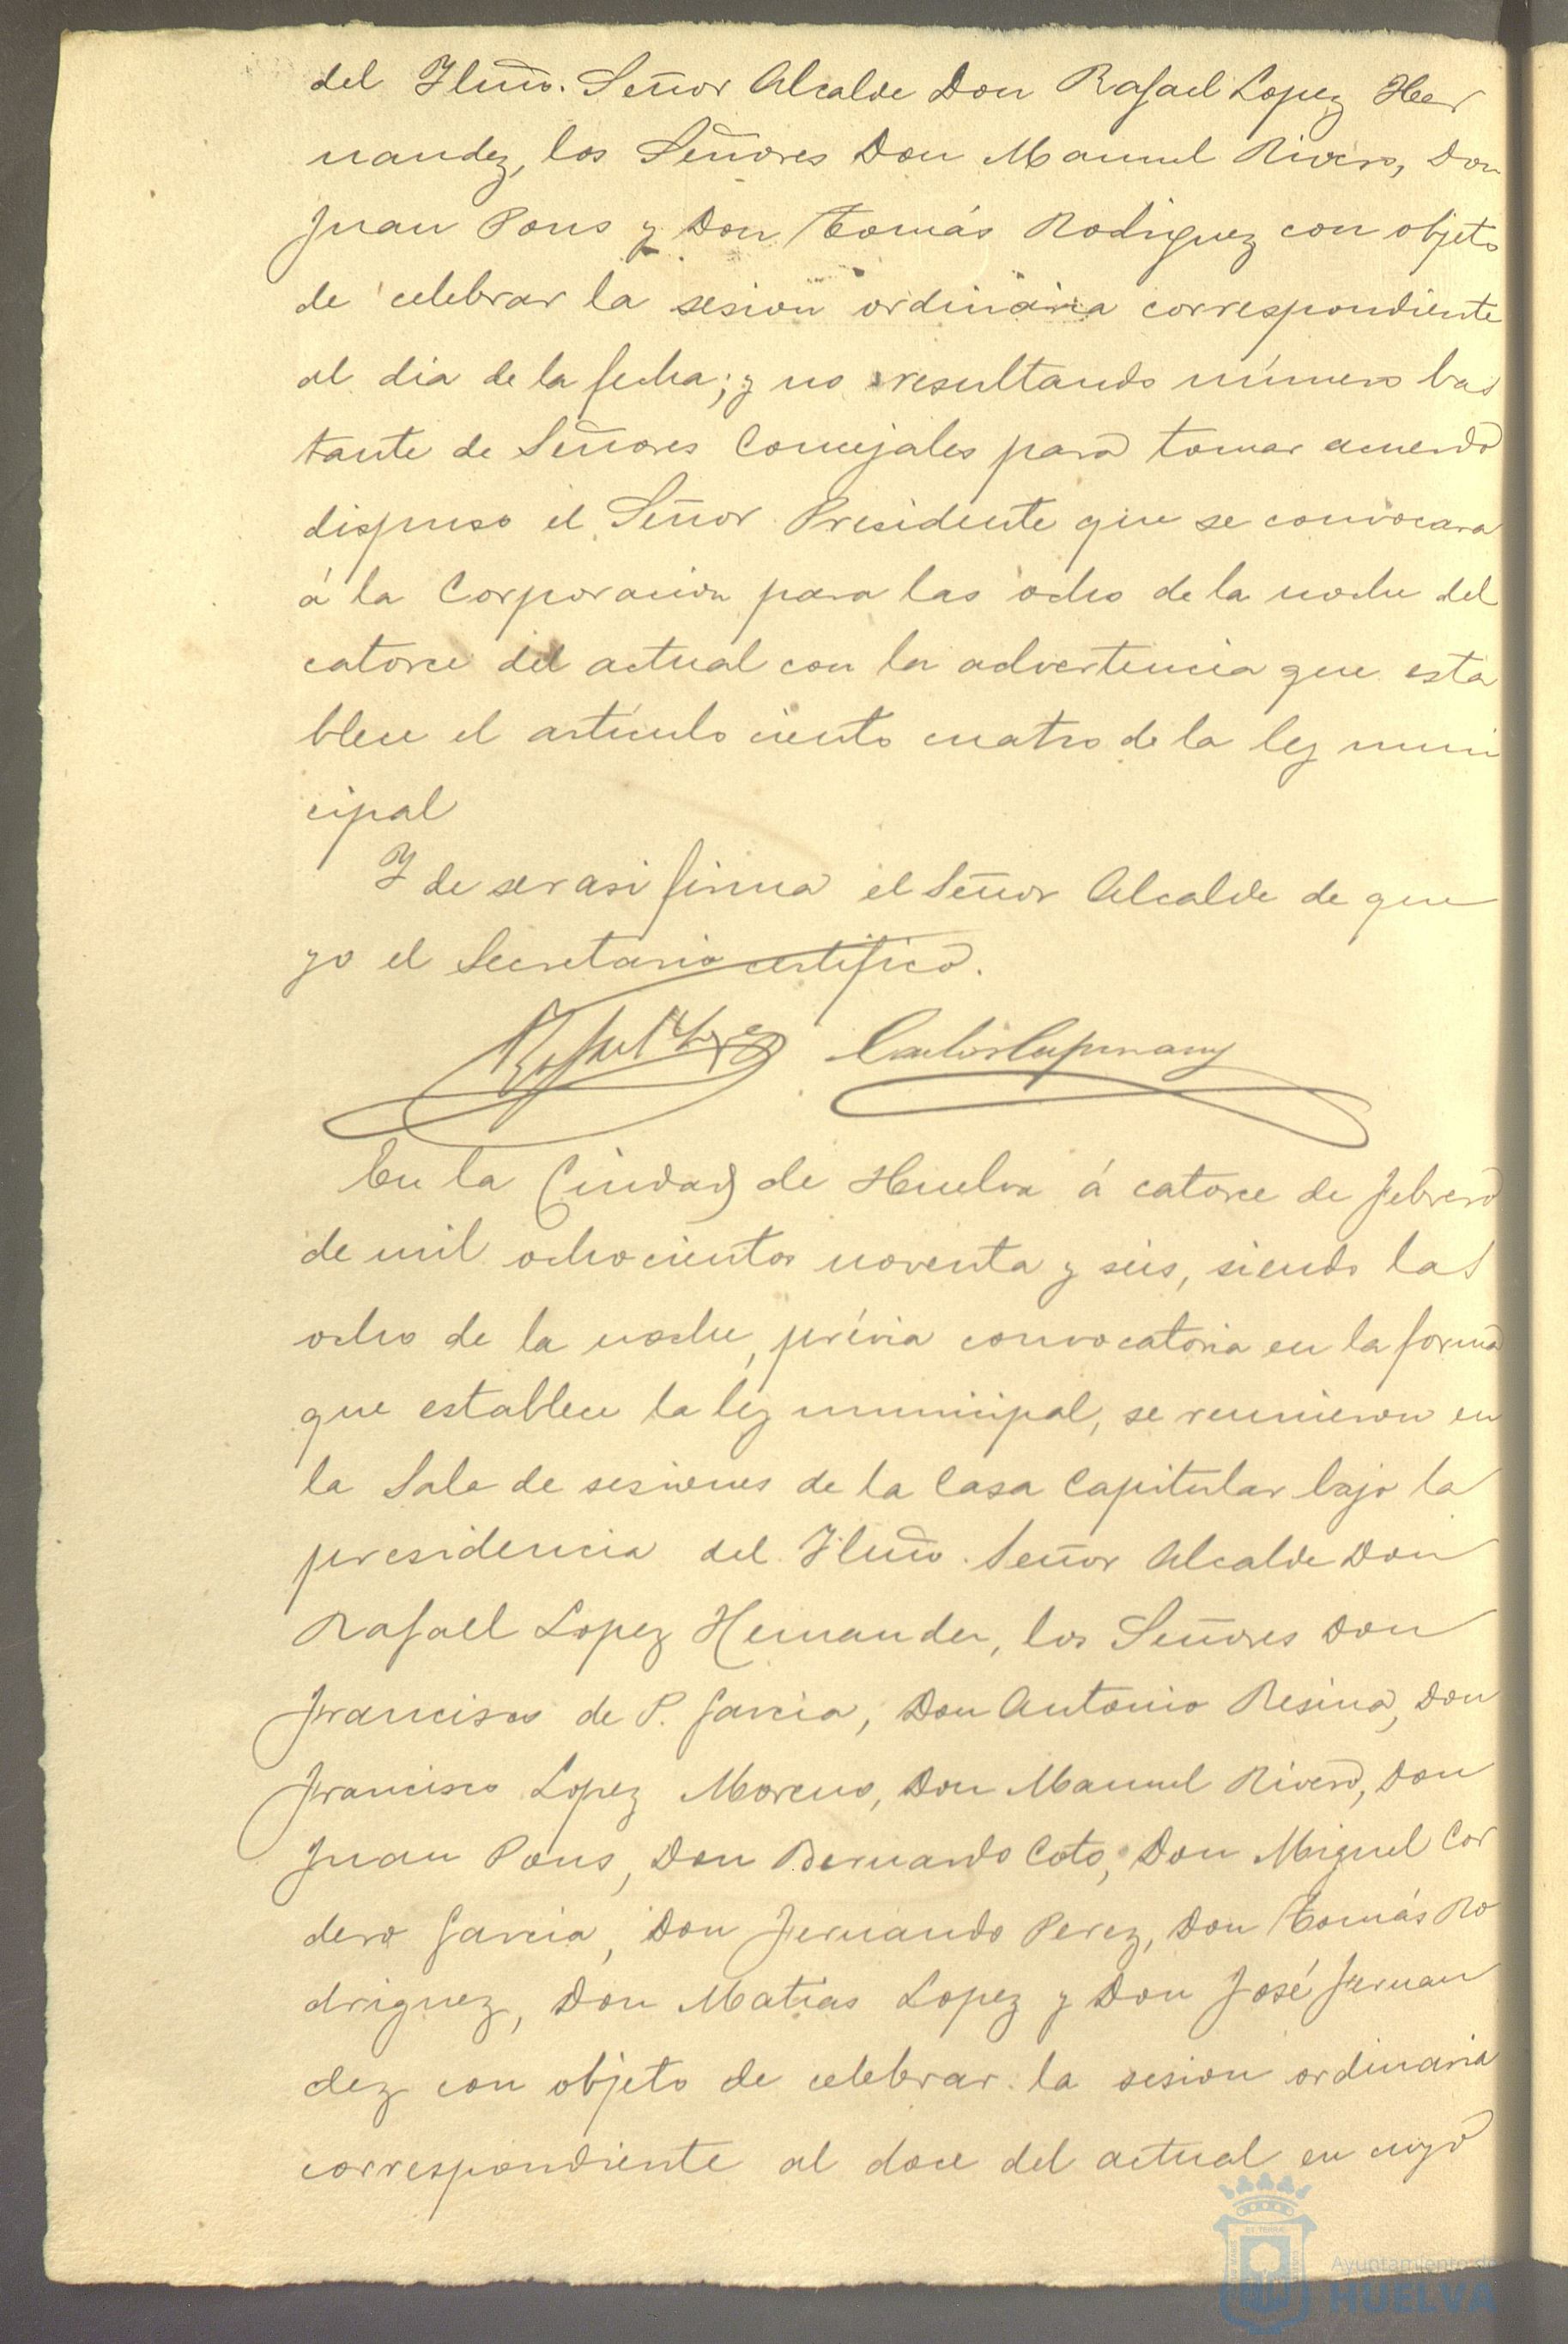 del Ylmo. Señor Alcalde Don Rafael Lopez Her
nandez, los Señores Don Manuel Rivero, Don
Juan Pons y Don Tomás Rodriguez con objeto
de celebrar la sesion ordinaria correspondiente
al dia de la fecha; y no resultando número bas
tante de Señores Concejales para tomar acuerdo
dispuso el Señor Presidente que se convocara
á la Corporacion para las ocho de la noche del
catorce del actual con la advertencia que esta
blece el artículo ciento cuatro de la ley muni
cipal
Y de ser asi firma el Señor Alcalde de que
yo el Secretario certifico.
Rafael Lopez
En la Ciudad de Huelva á catorce de febrero
de mil ochocientos noventa y seis, siendo las
ocho de la noche, prévia convocatoria en la forma
que establece la ley municipal, se reunieron en
la Sala de sesiones de la Casa Capitular bajo la
presidencia del Ylmo. Señor Alcalde Don
Rafael Lopez Hernandez, los Señores Don
Francisco de P. Garcia, Don Antonio Resina, Don
Francisco Lopez Moreno, Don Manuel Rivero, Don
Juan Pons, Don Bernardo Coto, Don Miguel Cor
dero Garcia, Don Fernando Perez, Don Tomás Ro
driguez, Don Matias Lopez y Don José Fernan
dez con objeto de celebrar la sesion ordinaria
correspondiente al doce del actual en cuyo
Ayuntamiento de
HUELVA